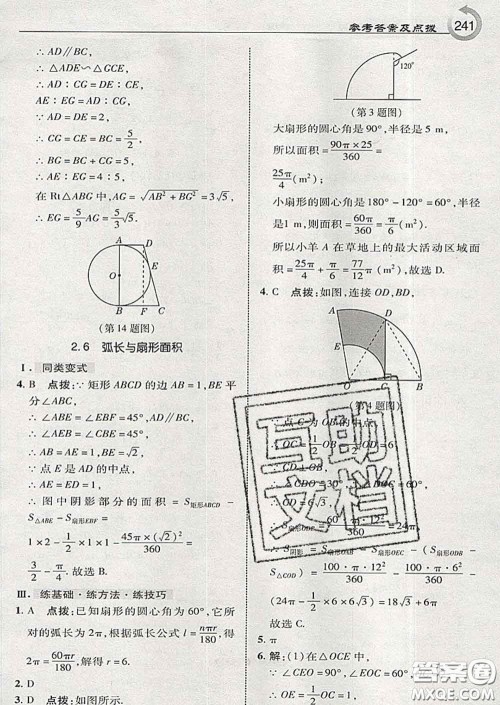 参考答案及点拨 241
∴ AD∥BC.
∴ △ADE∽△CGE.
∴ AE∶EG=AD∶CG,
∵ AD=DE=2,
∴ CG=CE=BC=5/2,
∴ BG=BC+CG=5,
∴ AE∶EG=4∶5,
在Rt△ABG中,AG=√(AB²+BG²)=3√5,
∴ EG=5/9 AG=5/3 √5.
A D
O E
B F C
(第14题图)
2.6 弧长与扇形面积
Ⅰ. 同类变式
4. B 点拨:∵ 矩形ABCD的边AB=1,BE平
分∠ABC,
∴ ∠ABE=∠EBF=45°,AD∥BC,
∴ ∠AEB=∠CBE=45°,
∴ AB=AE=1,BE=√2,
∵ 点E是AD的中点,
∴ AE=ED=1,
∴ 图中阴影部分的面积=S矩形ABCD−
S△ABE−S扇形EBF=
1×2−1/2×1×1−45π×(√2)²/360=
3/2−π/4. 故选B.
Ⅲ. 练基础·练方法·练技巧
1. A 点拨:已知扇形的圆心角为60°,它所
对的弧长为2π,根据弧长公式l=nπr/180,得
2π=60πr/180,解得r=6.
2. D
3. D 点拨:如图所示.
120°
(第3题图)
大扇形的圆心角是90°,半径是5 m,
所以面积=90π×25/360=
25π/4(m²);
小扇形的圆心角是180°−120°=60°,半
径是1 m,则面积=60π/360=π/6(m²).
所以小羊A在草地上的最大活动区域面
积=25π/4+π/6=77/12 π(m²),故选D.
4. C 点拨:如图,连接OD,BD,
A D
E
O C B
(第4题图)
∵ 点C为OB的中点,
∴ OC=1/2 OB=1/2 OD=6,
∵ CD⊥OB,
∴ ∠CDO=30°,
=24π,
∴ S阴影=S扇形AOB−S扇形COE−(S扇形BOD−
S△COD)=100·π·12²/360−100·π·6²/360−
(24π−1/2×6×6√3)=18√3+6π.
故选C.
5. π
6. 解:(1)在△OCE中,
∵ ∠CEO=90°,∠EOC=60°,
∴ OE=1/2 OC=1
互助文档
答案圈
MXQE.COM